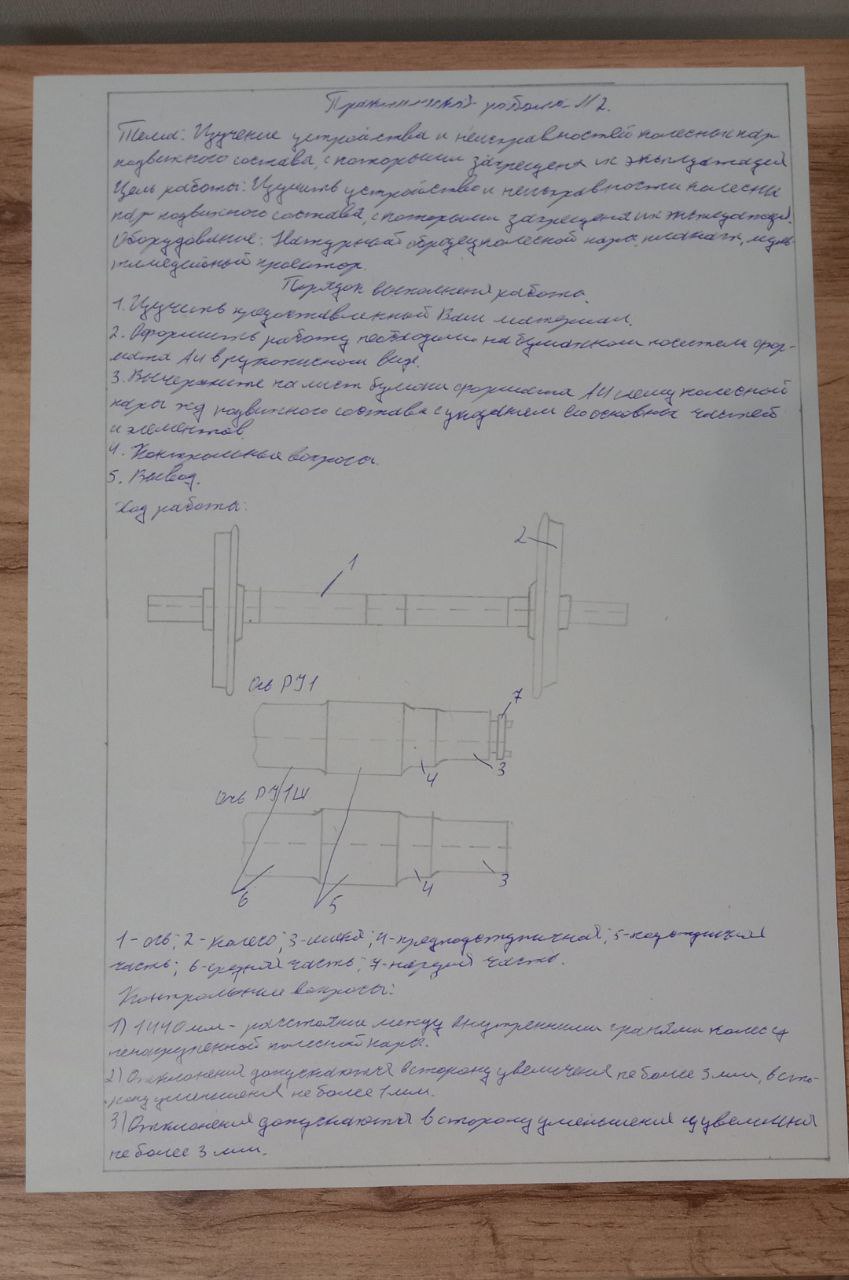 Практическая работа №2.
Тема: Изучение устройства и неисправностей колесных пар
подвижного состава, с которыми запрещена их эксплуатация
Цель работы: Изучить устройство и неисправности колесны
пар подвижного состава, с которыми запрещена их эксплуатация.
Оборудование: Натурный образец колесной пары, плакаты, муль-
тимедийный проектор.
Порядок выполнения работы.
1. Изучить предоставленный Вам материал.
2. Оформить работу необходимо на бумажном носителе фор-
мата А4 в рукописном виде.
3. Вычерчите на лист бумаги формата А4 схему колесной
пары жд подвижного состава с указанием его основных частей
и элементов.
4. Контрольные вопросы.
5. Вывод.
Ход работы:
1
2
Ось РУ1
7
4
3
Ось РУ1Ш
6
5
4
3
1-ось; 2-колесо; 3-шейка; 4-предподступичная; 5-подступичная
часть; 6-средняя часть; 7- часть.
Контрольные вопросы:
1) 1440мм- расстояние между внутренними гранями колес у
ненагруженной колесной пары.
2) Отклонения допускаются в сторону увеличения не более 3мм, в сто-
рону уменьшения не более 1мм.
3) Отклонения допускаются в сторону уменьшения и увеличения
не более 3 мм.